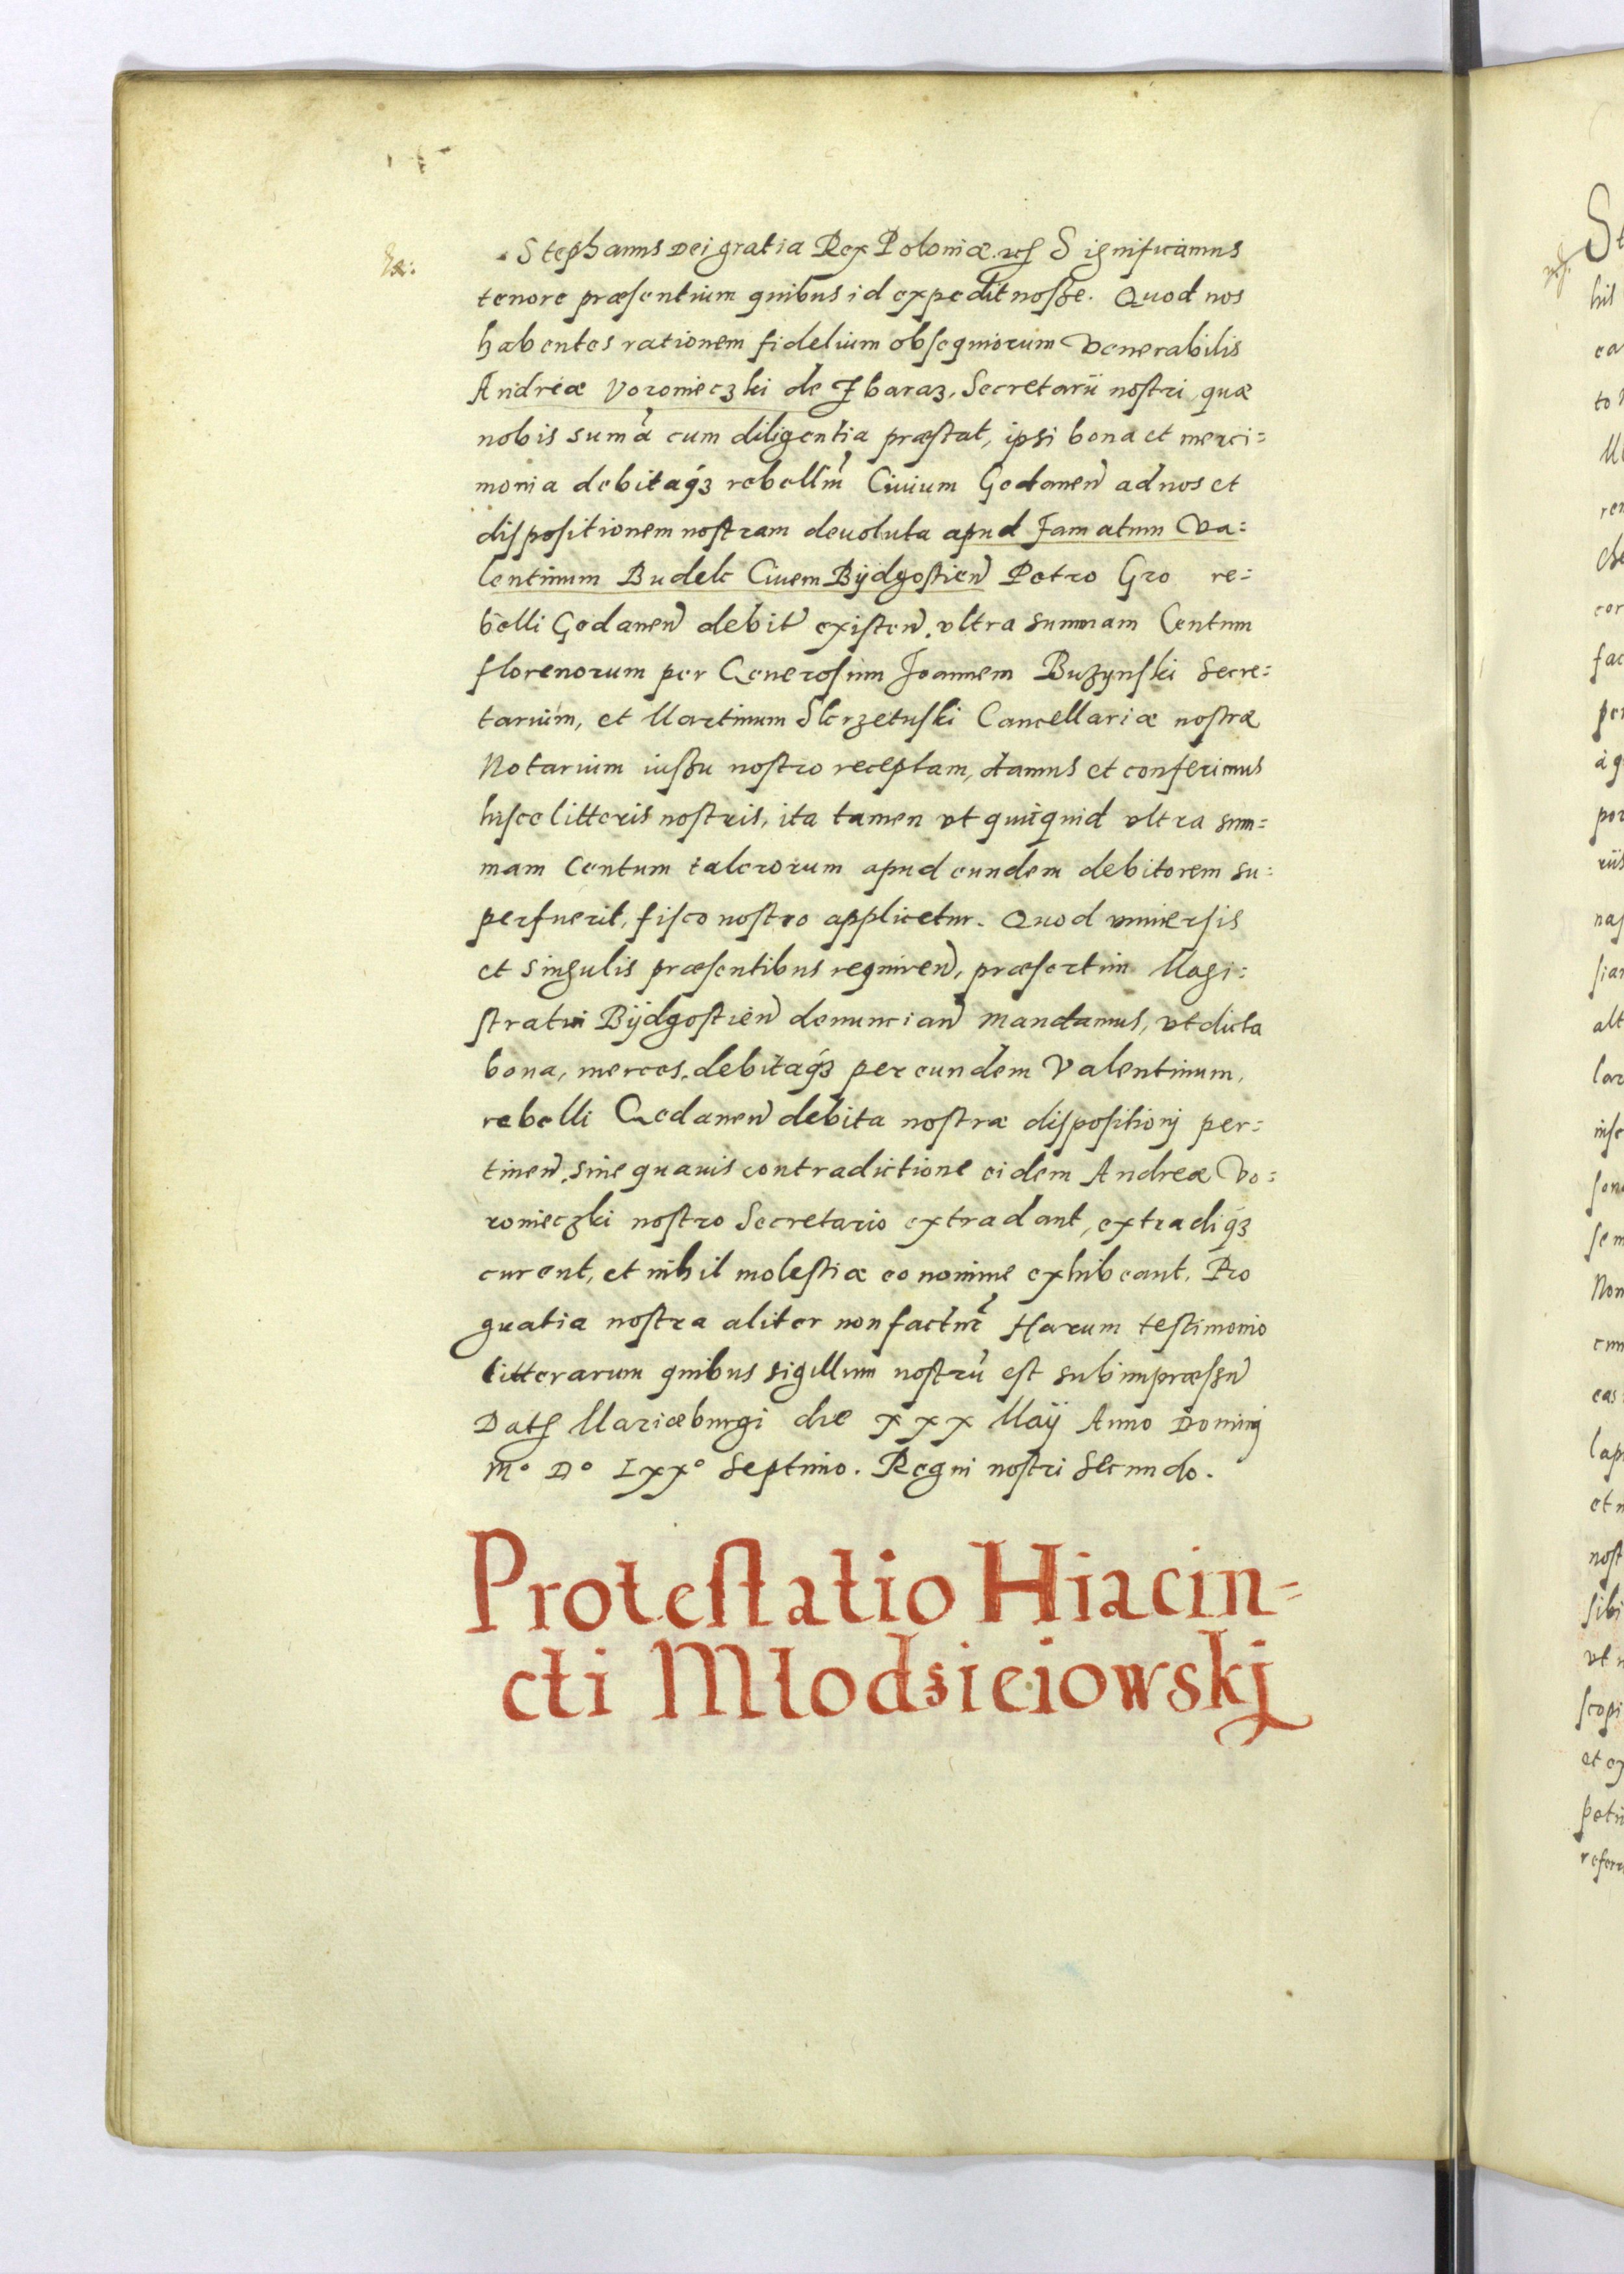 Stephanus Dei gratia Rex Poloniæ etc Significamus
tenore præsentium quibus id expedit nosse. Quod nos
habentes rationem fidelium obsequiorum Venerabilis
Andreæ Voronieczki de Zbaraz, Secretarii nostri, quæ
nobis summa cum diligentia præstat, ipsi bona et merci=
monia debitaq3 rebelliũ Ciuium Gedanen ad nos et
dispositionem nostram deuoluta apud Famatum Va=
lentinum Budek Ciuem Bÿdgostien Petro Gro re=
belli Gedanen debit existen, vltra summam Centum
florenorum per Generosum Joannem Buzynski Secre=
tarium, et Martinum Skrzetuski Cancellariæ nostræ
Notarium iussu nostro receptam, damus et conferimus
hisce litteris nostris, ita tamen vt quicquid vltra sum=
mam Centum talerorum apud eundem debitorem su=
perfuerit, fisco nostro applicetur. Quod vniuersis
et singulis præsentibus requiren, præsertim Magi=
stratui Bÿdgostien denuncian mandamus, vt dicta
bona, merces, debitaq3 per eundem Valentinum,
rebelli Gedanen debita nostræ dispositionj per=
tinen, sine quauis contradictione eidem Andreæ Vo=
ronieczki nostro Secretario extradant, extradiq3
curent, et nihil molestiæ eo nomine exhibeant. Pro
guatia nostra aliter non factur Harum testimonio
litterarum quibus sigillum nostrũ est subimpræssũ
Dat Mariæburgi die xxx Maÿ Anno Dominj
Mº Dº Lxxº Septimo. Regni nostri Secundo.
Protestatio Hiacin=
cti Młodzieiowskj